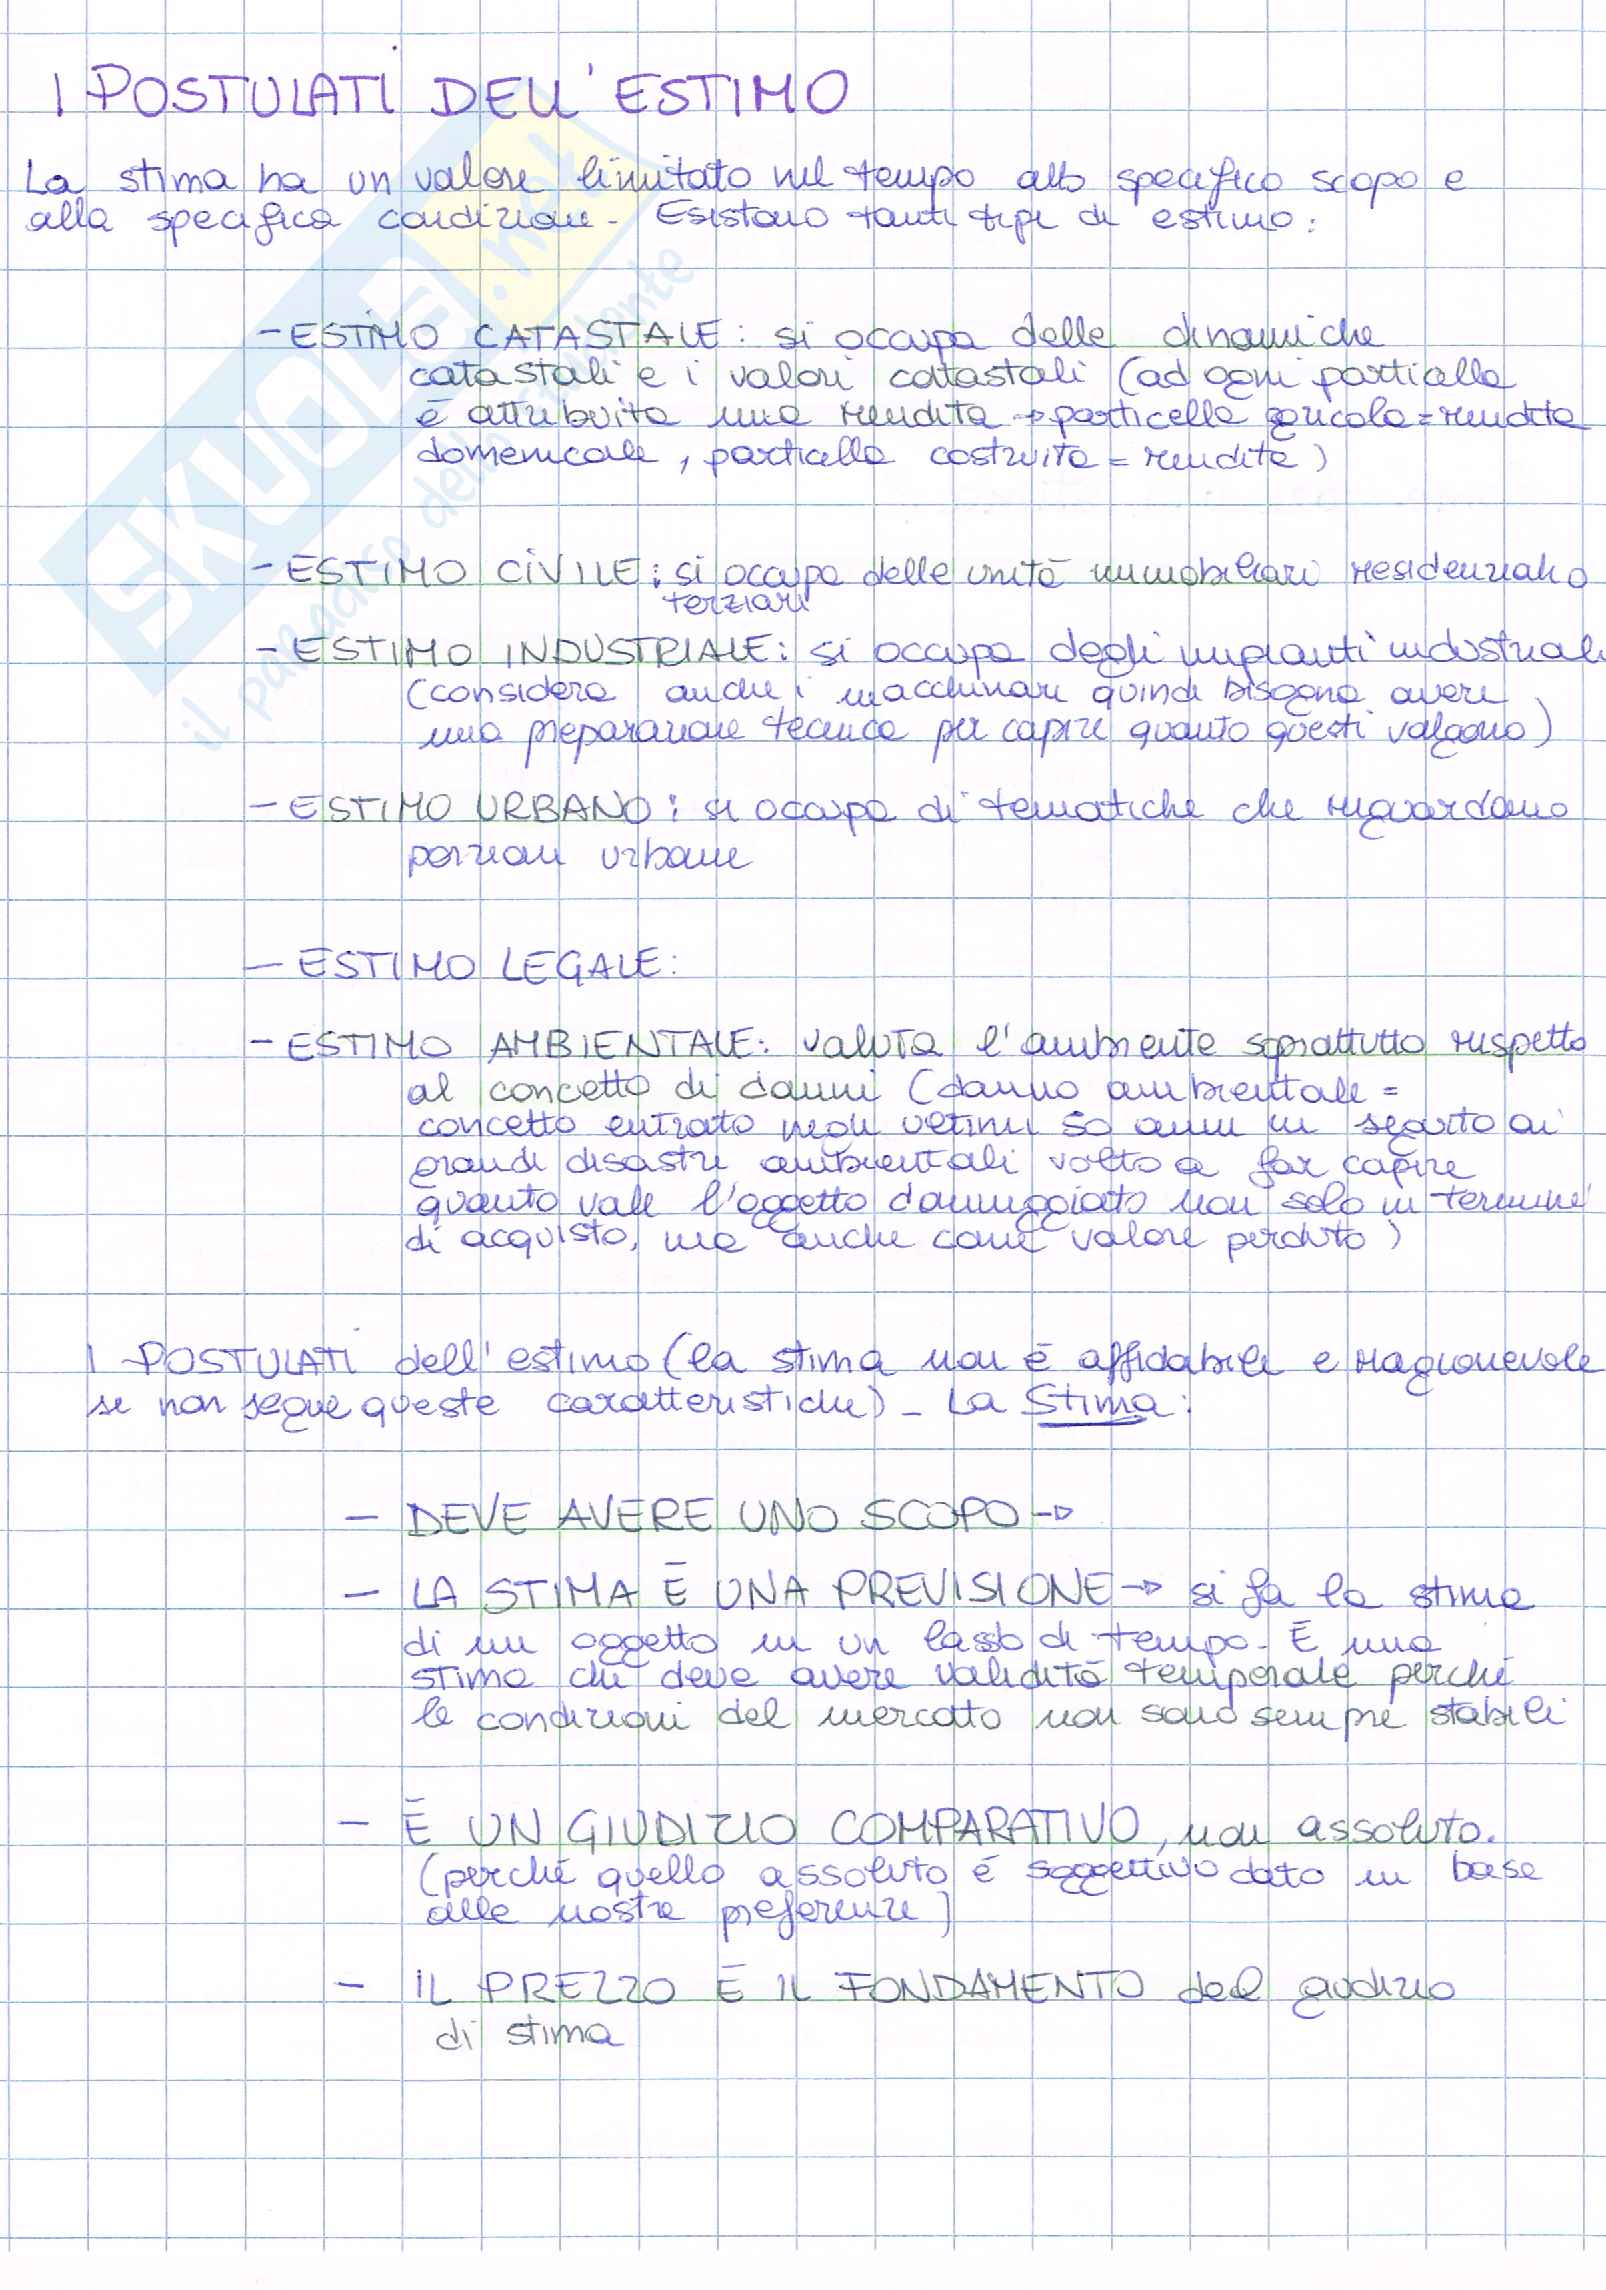 I POSTULATI DELL'ESTIMO
La stima ha un valore limitato nel tempo allo specifico scopo e
alla specifica condizione - Esistono tanti tipi di estimo:
- ESTIMO CATASTALE: si occupa delle dinamiche
catastali e i valori catastali (ad ogni particella
è attribuita una rendita → particella agricola = rendita
domenicale, particella costruita = rendita)
- ESTIMO CIVILE: si occupa delle unità immobiliari residenziali o
terziari
- ESTIMO INDUSTRIALE: si occupa degli impianti industriali
(considera anche i macchinari quindi bisogna avere
una preparazione tecnica per capire quanto questi valgono)
- ESTIMO URBANO: si occupa di tematiche che riguardano
porzioni urbane
- ESTIMO LEGALE:
- ESTIMO AMBIENTALE: valuta l'ambiente soprattutto rispetto
al concetto di danni (danno ambientale =
concetto entrato negli ultimi 50 anni in seguito ai
grandi disastri ambientali volto a far capire
quanto vale l'oggetto danneggiato non solo in termini
di acquisto, ma anche come valore perduto)
I POSTULATI dell'estimo (la stima non è affidabile e ragionevole
se non segue queste caratteristiche) - La Stima:
- DEVE AVERE UNO SCOPO →
- LA STIMA È UNA PREVISIONE → si fa la stima
di un oggetto in un lasso di tempo - È una
stima che deve avere validità temporale perché
le condizioni del mercato non sono sempre stabili
- È UN GIUDIZIO COMPARATIVO, non assoluto.
(perché quello assoluto è soggettivo dato in base
alle nostre preferenze)
- IL PREZZO È IL FONDAMENTO del giudizio
di stima
SKUOLA.net
il paradiso dello studente